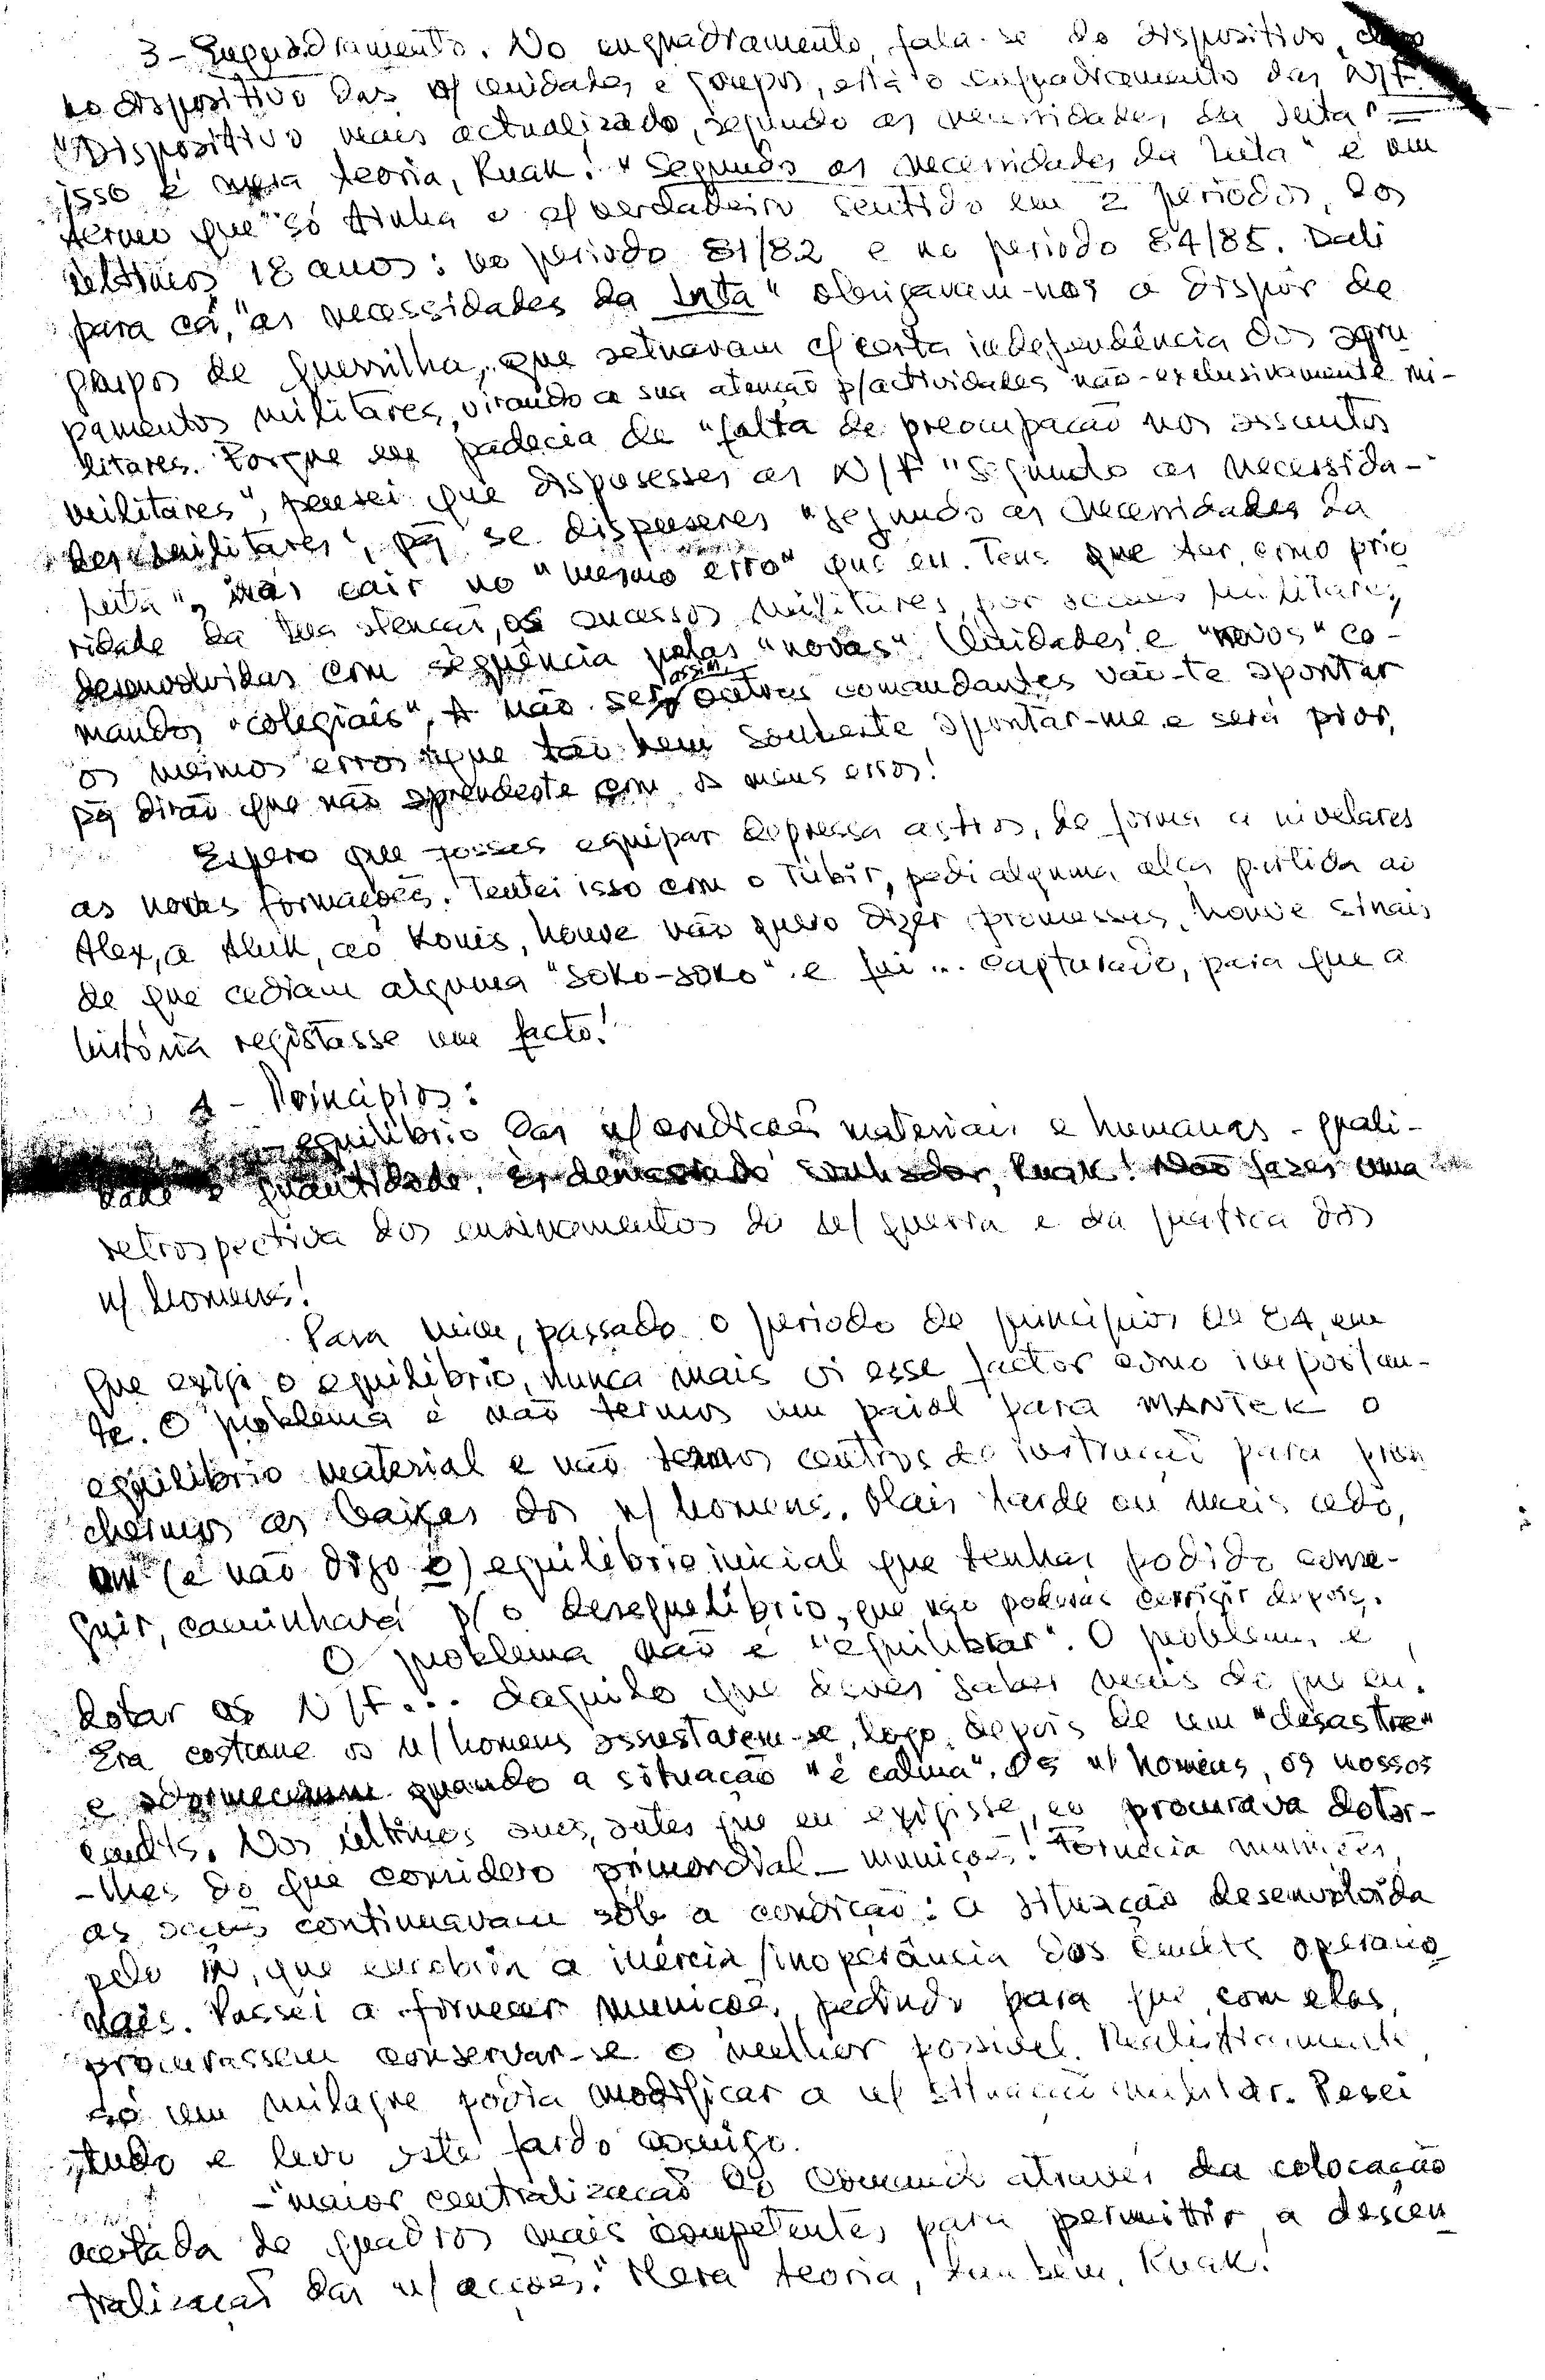 3 - Enquadramento. No enquadramento, fala-se do dispositivo,
no dispositivo das n/ unidades e corpos, está o enquadramento das N/F.
"Dispositivo mais actualizado, segundo as necessidades da luta" =
isso é mera teoria, Ruak! "Segundo as necessidades da luta" é um
termo que só tinha o s/ verdadeiro sentido em 2 períodos, dos
últimos 18 anos: no período 81/82 e no período 84/85. Dali
para cá, "as necessidades da luta" obrigavam-nos a dispôr de
grupos de guerrilha, que actuavam c/ certa independência dos agru
pamentos militares, virando a sua atenção p/ actividades não-exclusivamente mi-
litares. Porque eu padecia da "falta de preocupação nos assuntos
militares", pensei que dispusesses as N/F "segundo as necessida-
des militares", pq se dispuseres "segundo as necessidades da
luta", irás cair no "mesmo erro" que eu. Tens que ter, como prio
ridade da tua atenção, os sucessos militares, por acções militares,
desenvolvidas com sequência pelas "novas" Unidades e "novos" co-
mandos "colegiais". A não ser assim, outros comandantes vão-te apontar
os mesmos erros que tão bem soubeste apontar-me e será pior,
pq dirão que não aprendeste com os meus erros!
Espero que fosses equipar depressa as tias, de forma a nivelares
as novas formações. Tentei isso com o Tubir, pedi alguma ales partida ao
Alex, a Aluk, ao Konis, houve não quero dizer promessas, houve sinais
de que cediam alguma "soko-soko" e fui... capturado, para que a
história registasse um facto!
4 - Princípios:
- equilíbrio das n/ condições materiais e humanas - quali-
dade e quantidade. És demasiado sonhador, Ruak! Não fazes uma
retrospectiva dos ensinamentos da n/ guerra e da prática dos
n/ homens!
Para mim, passado o período de princípios de 84, em
que exigi o equilíbrio, nunca mais vi esse factor como importan-
te. O problema é não termos um paiol para MANTER o
equilíbrio material e não termos centros de instrução para preen
chermos as baixas dos n/ homens. Mais tarde ou mais cedo,
um (e não digo o) equilíbrio inicial que tenhas podido conse-
guir, caminhará p/ o desequilíbrio, que não poderás corrigir depois.
O problema não é "equilibrar". O problema é
dotar as N/F... daquilo que deves saber mais do que eu.
Era costume os n/ homens assustarem-se, logo depois de um "desastre"
e adormeciam quando a situação "é calma". Os n/ homens, os nossos
cmdts. Nos últimos anos, antes que eu exigisse, eu procurava dotar-
-lhes do que considero primordial - munições! Fornecia munições,
as acções continuavam sob a condição: a situação desenvolvida
pelo in, que encobria a inércia/inoperância dos cmdts operacio
nais. Passei a fornecer munições, pedindo para que, com elas,
procurassem conservar-se o melhor possível. Realisticamente,
só um milagre podia modificar a n/ situação militar. Pesei
tudo e levo este fardo comigo.
- "maior centralização do Comando através da colocação
acertada de quadros mais competentes para permitir a descen
tralização das n/ acções." Mera teoria, também, Ruak!